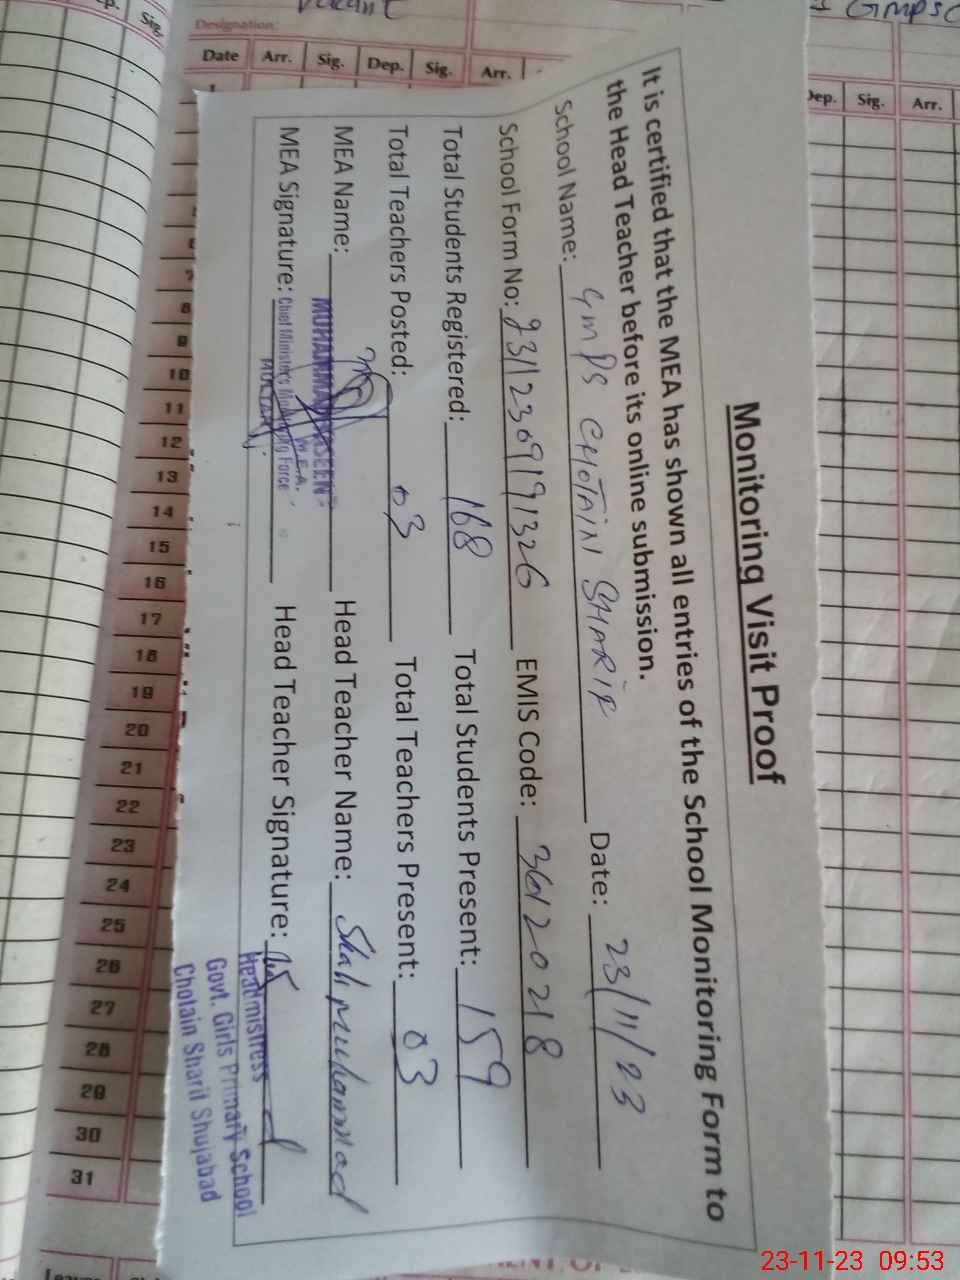 Monitoring Visit Proof
It is certified that the MEA has shown all entries of the School Monitoring Form to
the Head Teacher before its online submission.
School Name: GMPS CHOTAIN SHARIF Date: 23/11/23
School Form No: 23112309191326 EMIS Code: 36120218
Total Students Registered: 168 Total Students Present: 159
Total Teachers Posted: 03 Total Teachers Present: 03
MEA Name: Head Teacher Name: Shah Muhammad
MUHAMMAD
M.E.A.
MEA Signature: Head Teacher Signature:
Chief Minister's Monitoring Force
MULTAN
Headmistress
Govt. Girls Primary School
Chotain Sharif Shujabad
Designation:
Vacant
Date Arr. Sig. Dep. Sig. Arr.
Dep. Sig. Arr.
Sig.
1
6
7
8
9
10
11
12
13
14
15
16
17
18
19
20
21
22
23
24
25
26
27
28
29
30
31
23-11-23 09:53